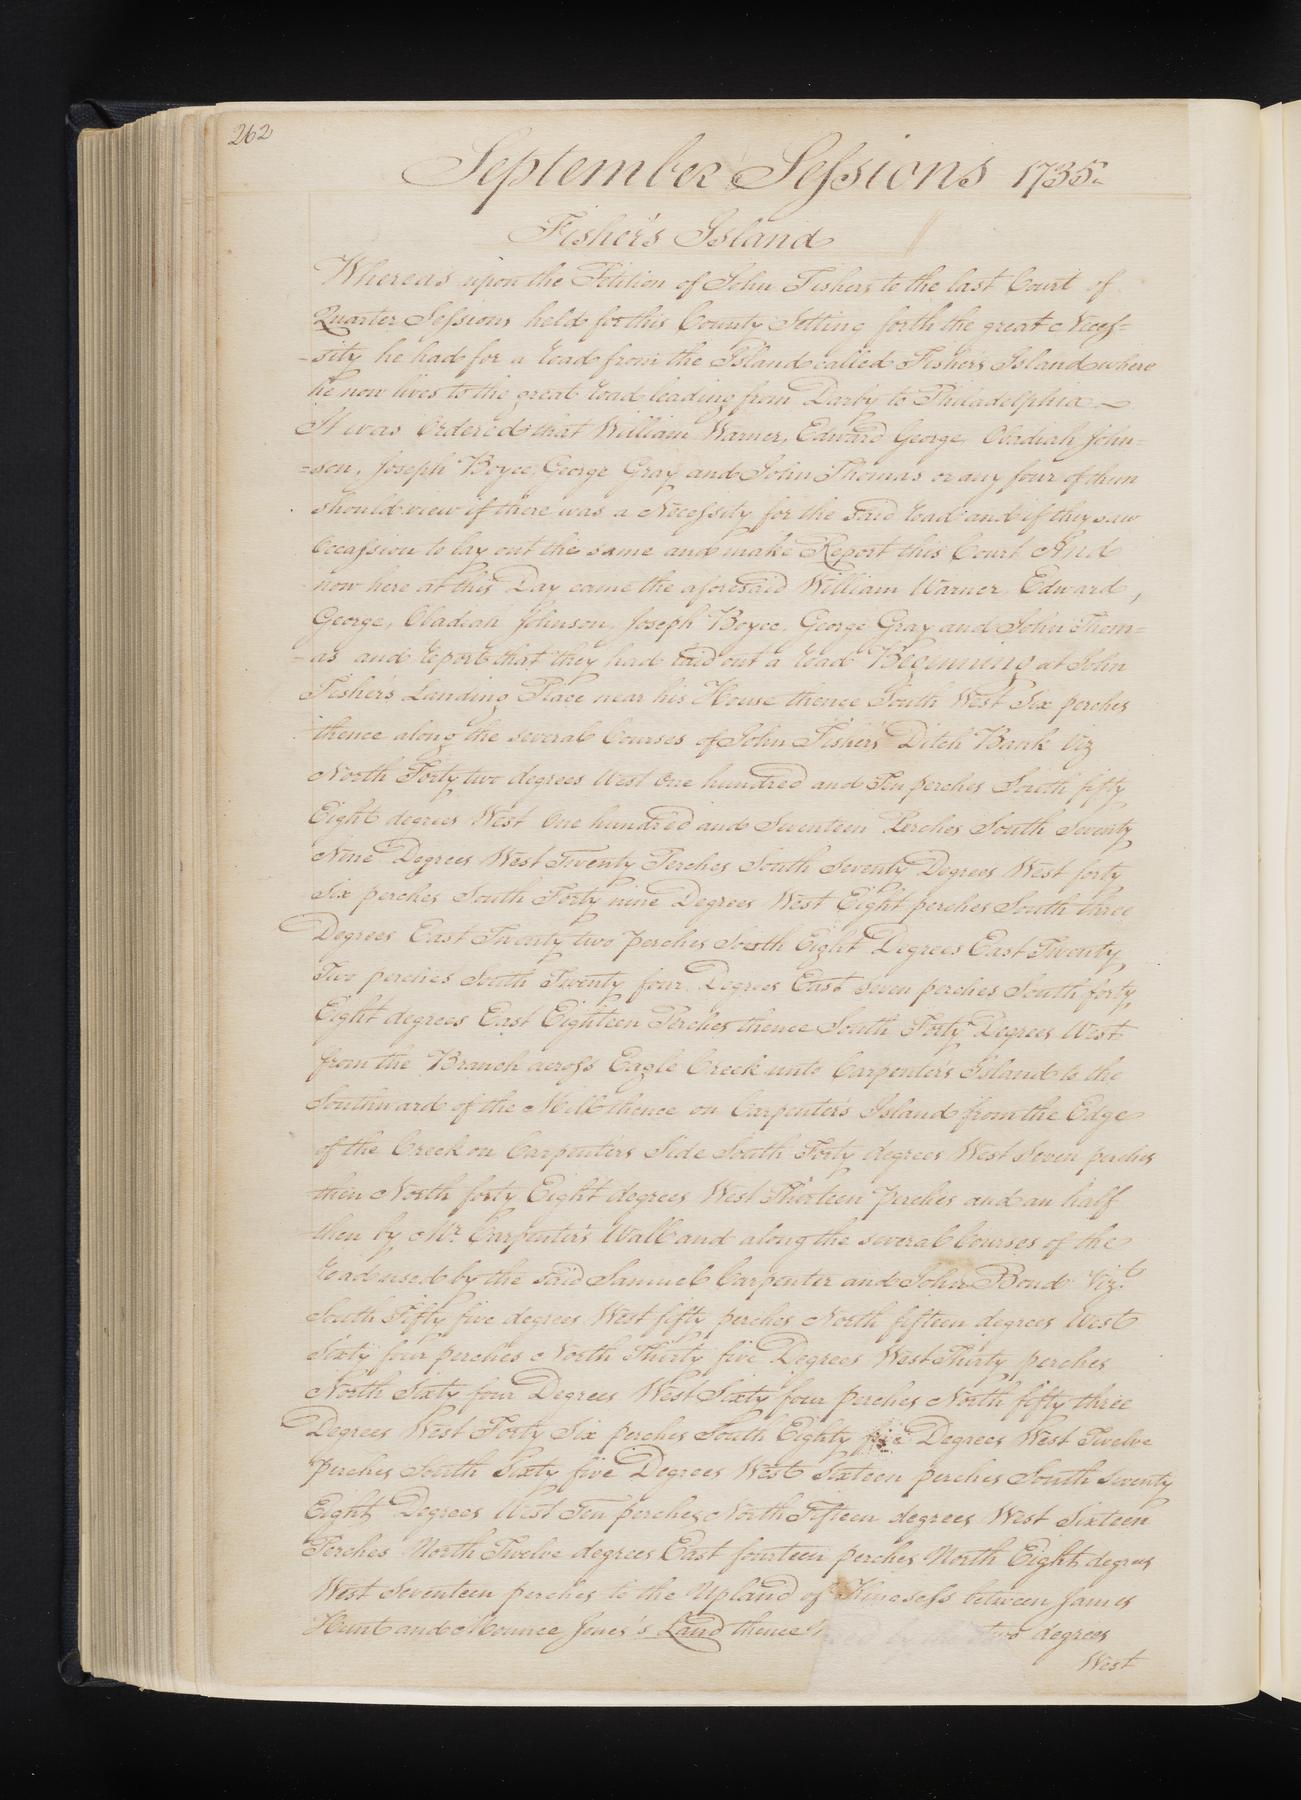 262
September Sessions 1735.
Fisher's Island
Whereas upon the Petition of John Fisher to the last Court of
Quarter Sessions held for this County Setting forth the great Neces=
=sity he had for a road from the Island called Fisher's Island where
he now lives to the great road leading from Darby to Philadelphia
It was Ordered that William Warner, Edward George, Obadiah John=
=son, Joseph Boyce, George Gray and John Thomas or any four of them
should view if there was a Necessity for the said road and if they saw
Occassion to lay out the same and make Report this Court And
now here at this Day came the aforesaid William Warner Edward,
George, Obadiah Johnson, Joseph Boyce, George Gray and John Thom=
=as and report that they had laid out a road Beginning at John
Fisher's Landing Place near his House thence South West Six perches
thence along the several Courses of John Fisher's Ditch Bank Viz
North Forty two degrees West One hundred and Ten perches South fifty
Eight degrees West One hundred and Seventeen Perches South Seventy
Nine Degrees West Twenty Perches South Seventy Degrees West forty
Six perches South Forty nine Degrees West Eight perches South three
Degrees East Twenty two perches South Eight Degrees East Twenty
Two perches South Twenty four Degrees East seven perches South forty
Eight degrees East Eighteen Perches thence South Forty Degrees West
from the Branch across Eagle Creek unto Carpenter's Island to the
Southward of the Mill thence on Carpenter's Island from the Edge
of the Creek on Carpenters Side South Forty degrees West Seven perches
then North forty Eight degrees West Thirteen Perches and an half
then by Mr. Carpenter's Wall and along the several Courses of the
road used by the said Samuel Carpenter and John Bond Vizt.
South Fifty five degrees West fifty perches North fifteen degrees West
Sixty four perches North Thirty five Degrees West Thirty perches
North Sixty four Degrees West Sixty four perches North fifty three
Degrees West Forty Six perches South Eighty five Degrees West Twelve
perches South Sixty five Degrees West Sixteen perches South seventy
Eight Degrees West Ten perches North Fifteen degrees West Sixteen
Perches North Twelve degrees East fourteen perches North Eight degrees
West Seventeen perches to the Upland of Kingsess between James
Hunt and Mounce Jones's Land thence two degrees
West